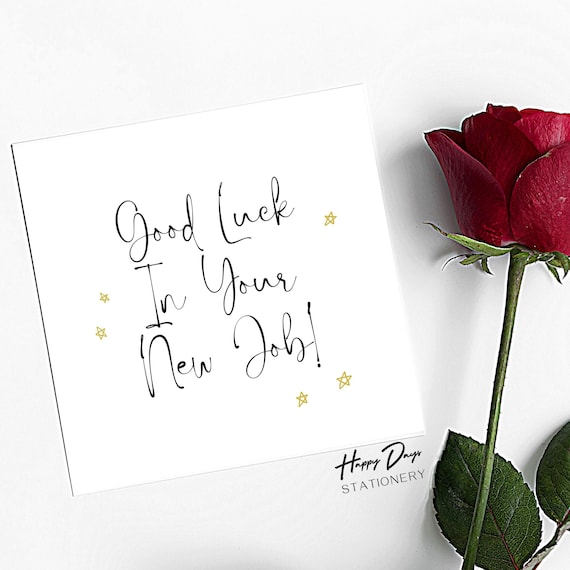 Good Luck
In Your
New Job!
Happy Days
STATIONERY